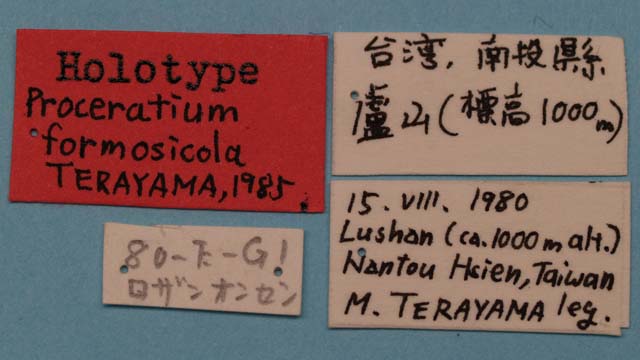 Holotype
Proceratium
formosicola
TERAYAMA, 1985.
台湾, 南投県
廬山(標高1000m)
15. VIII. 1980
Lushan (ca. 1000 m alt.)
Nantou Hsien, Taiwan
M. TERAYAMA leg.
ロザンオンセン